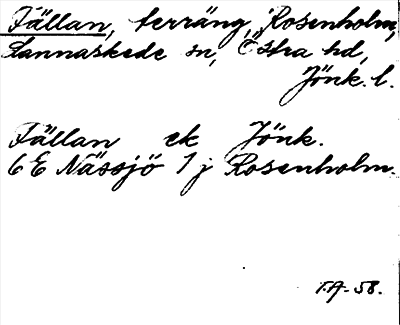 Fällan, terräng, Rosenholm,
Lannaskede sn, Östra hd,
Jönk. l.
Fällan ek Jönk.
6E Nässjö 1j Rosenholm.
T.A-58.